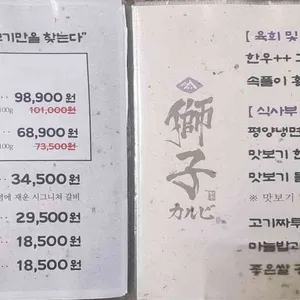 기만을 찾는다"
98,900원
100g 101,000원
68,900원
100g 73,500원
34,500원
재운 시그니처 갈비
29,500원
18,500원
18,500원
獅子
カルビ
[ 육회 및
한우++
속풀이 황
[ 식사부
평양냉면
맛보기
맛보기 물
※ 맛보기
고기짜투
마늘밥
좋은쌀